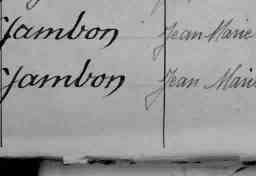 Jambon Jean Marie
Jambon Jean Marie